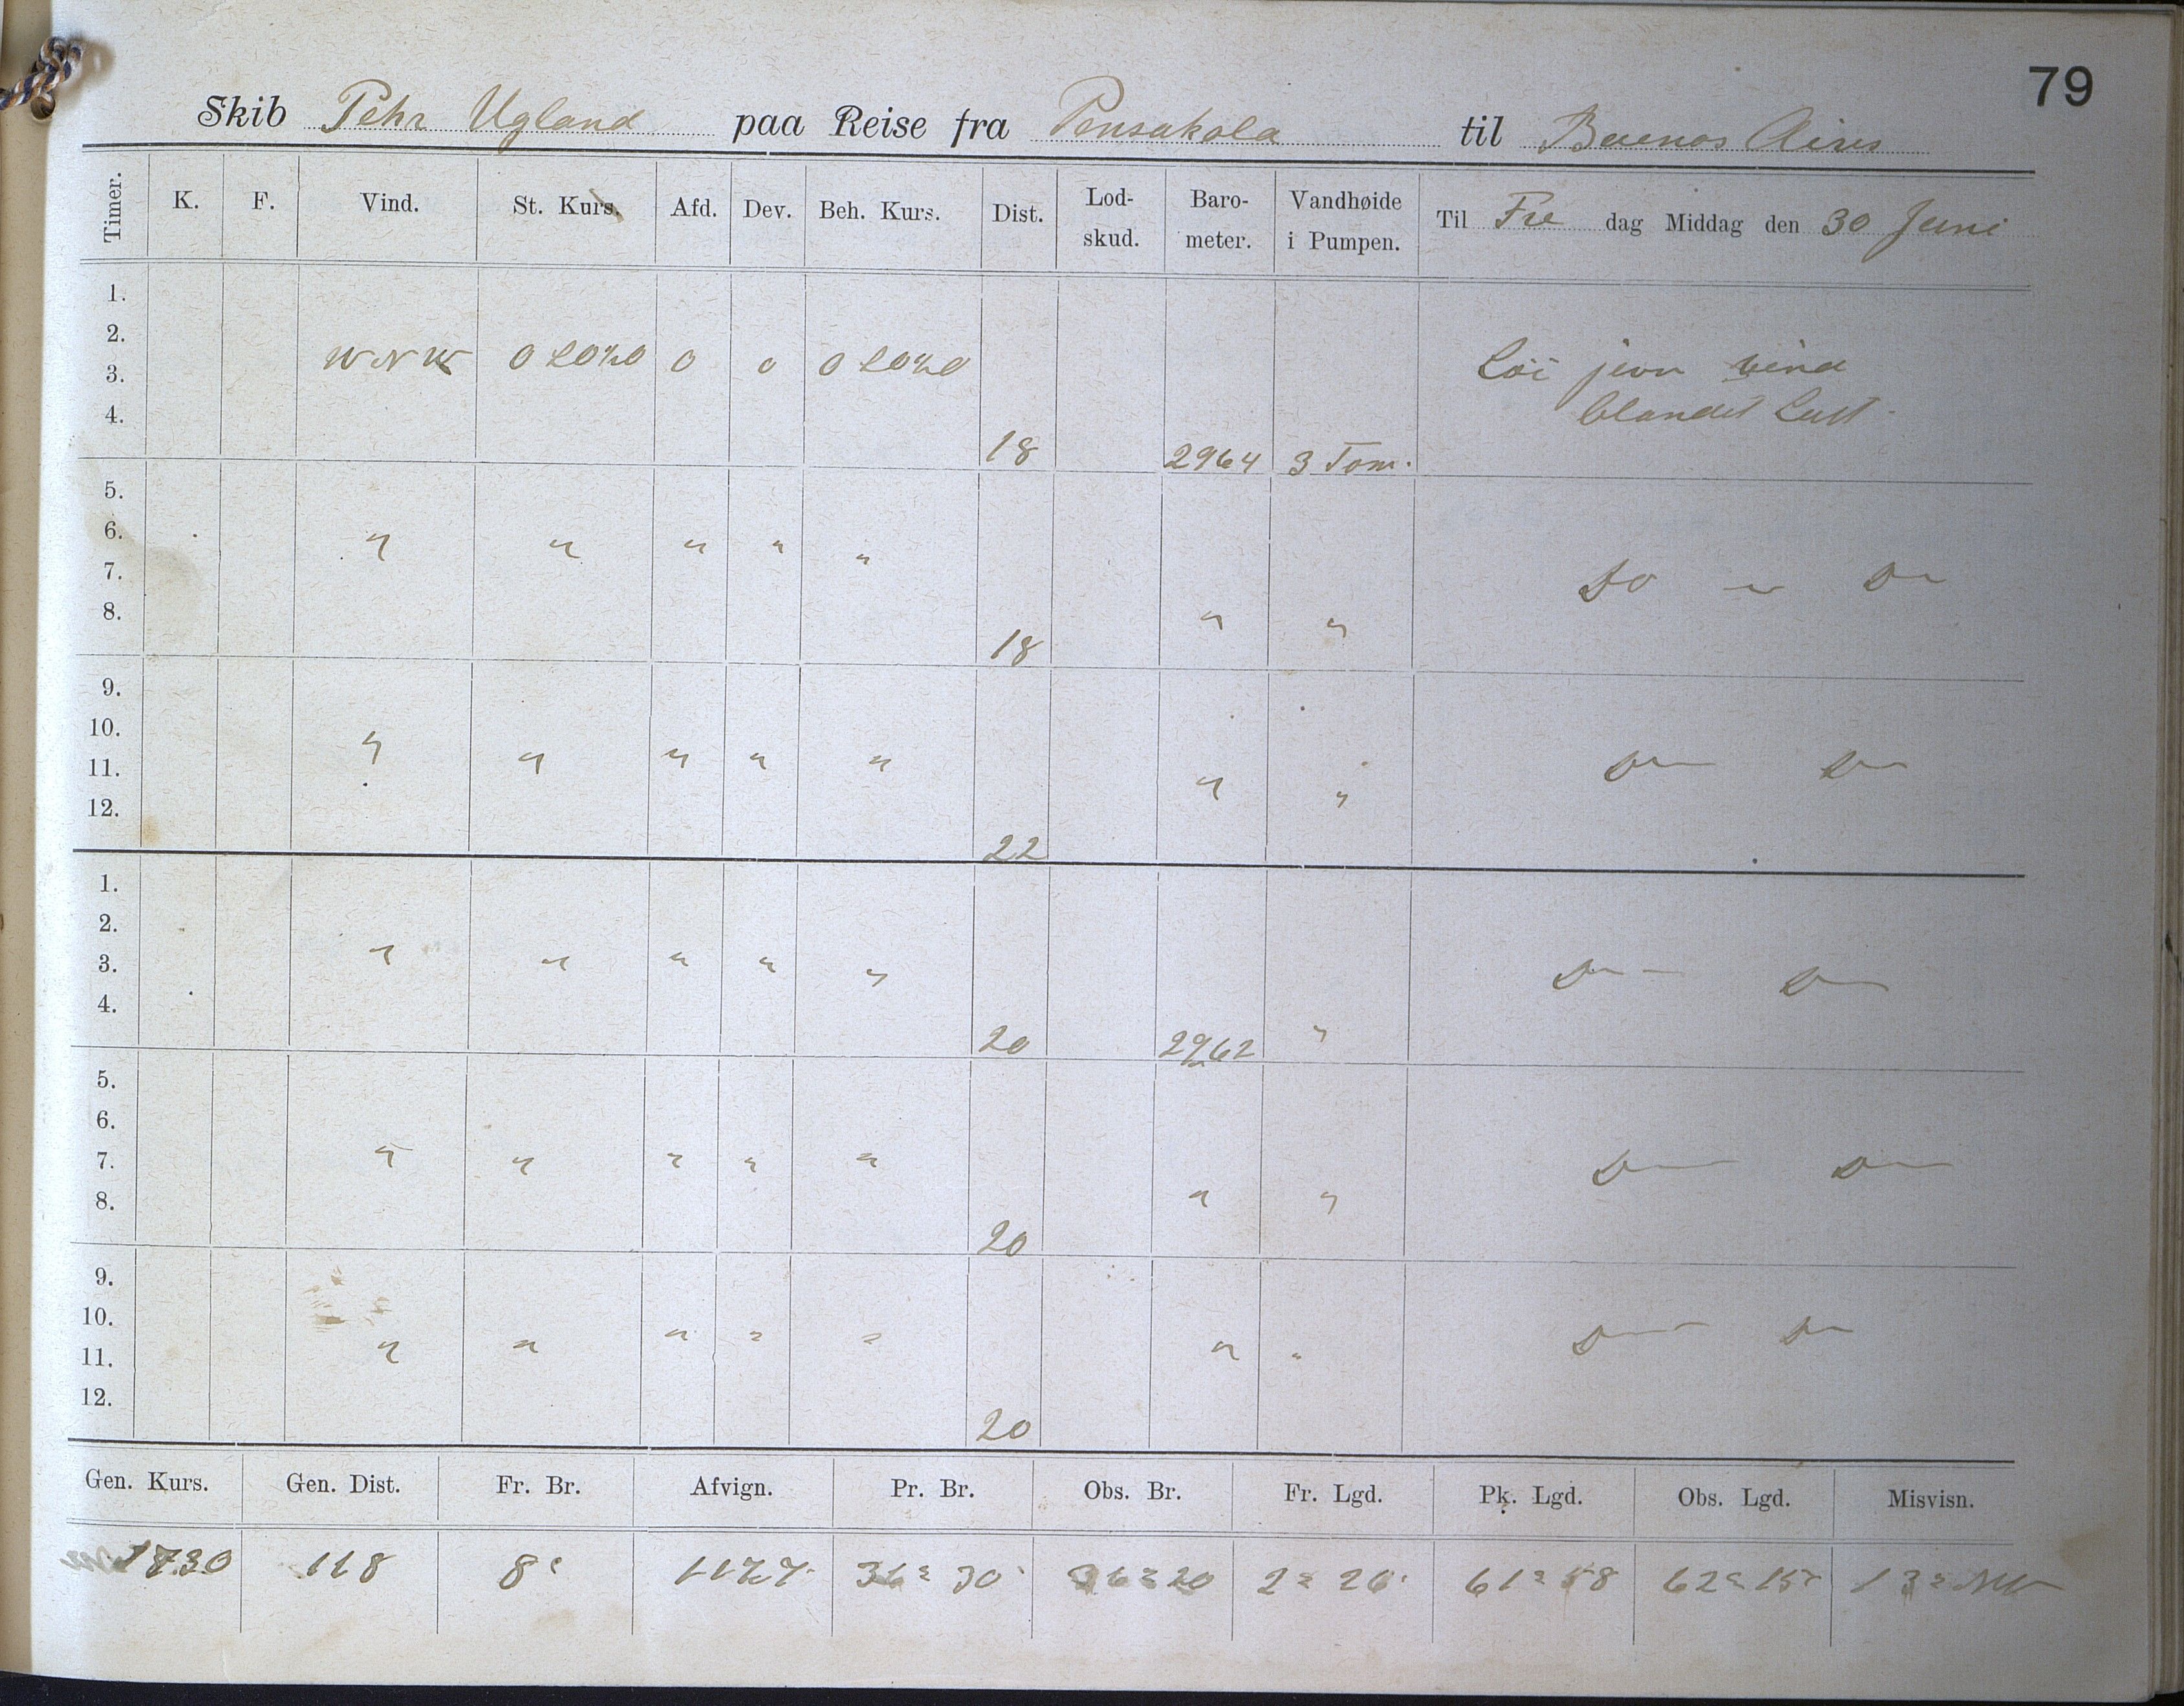 79
Skib Pehr Ugland paa Reise fra Pensakola til Buenos Aires
Timer. K. F. Vind. St. Kurs. Afd. Dev. Beh. Kurs. Dist. Lod-skud. Baro-meter. Vandhøide i Pumpen. Til Fre dag Middag den 30 Juni
1.
2.
3. WNW 0 0 Löi jevn vind
4. blandet Luft
18 2964 3 Tom.
5.
6. " " " " "
7. Do " Do
8. " "
18
9.
10. "
11. " " " " " " Do Do
12.
22
1.
2.
3. " " " " " Do Do
4.
20 2962 "
5.
6.
7. " " " " " Do Do
8. " "
20
9.
10.
11. " " " " " " " Do Do
12.
20
Gen. Kurs. Gen. Dist. Fr. Br. Afvign. Pr. Br. Obs. Br. Fr. Lgd. Pk. Lgd. Obs. Lgd. Misvisn.
118 8 117,7 36 30 36 20 2 26 61 58 62 15 13